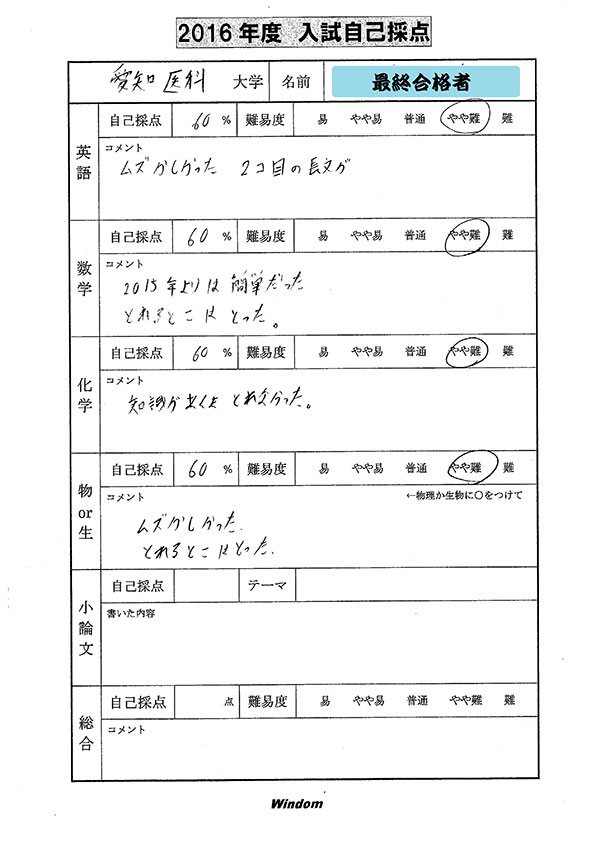 2016年度 入試自己採点
愛知医科 大学 名前 最終合格者
英語
自己採点 60 % 難易度 易 やや易 普通 やや難 難
コメント
ムズかしかった 2コ目の長文が
数学
自己採点 60 % 難易度 易 やや易 普通 やや難 難
コメント
2015年よりは簡単だった
とれるとこはとった。
化学
自己採点 60 % 難易度 易 やや易 普通 やや難 難
コメント
知識が とれなかった。
物or生
自己採点 60 % 難易度 易 やや易 普通 やや難 難
コメント ←物理か生物に○をつけて
ムズかしかった.
とれるとこはとった.
小論文
自己採点 テーマ
書いた内容
総合
自己採点 点 難易度 易 やや易 普通 やや難 難
コメント
Windom